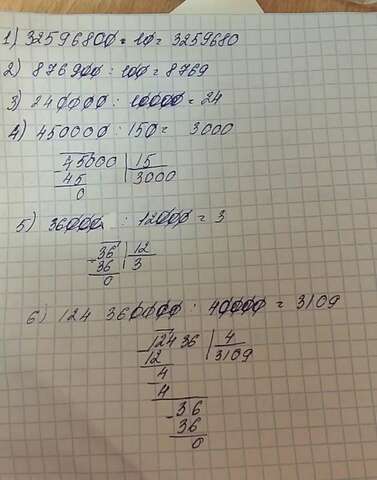 1) 32596800 = 10 = 3259680
2) 876900 : 100 = 8769
3) 240000 : 10000 = 24
4) 450000 : 150 = 3000
- 45000 | 15
45 | 3000
0
5) 36000 : 12000 = 3
- 36 | 12
36 | 3
0
6) 124 360000 : 40000 = 3109
- 124 36 | 4
12 | 3109
- 4
4
- 36
36
0